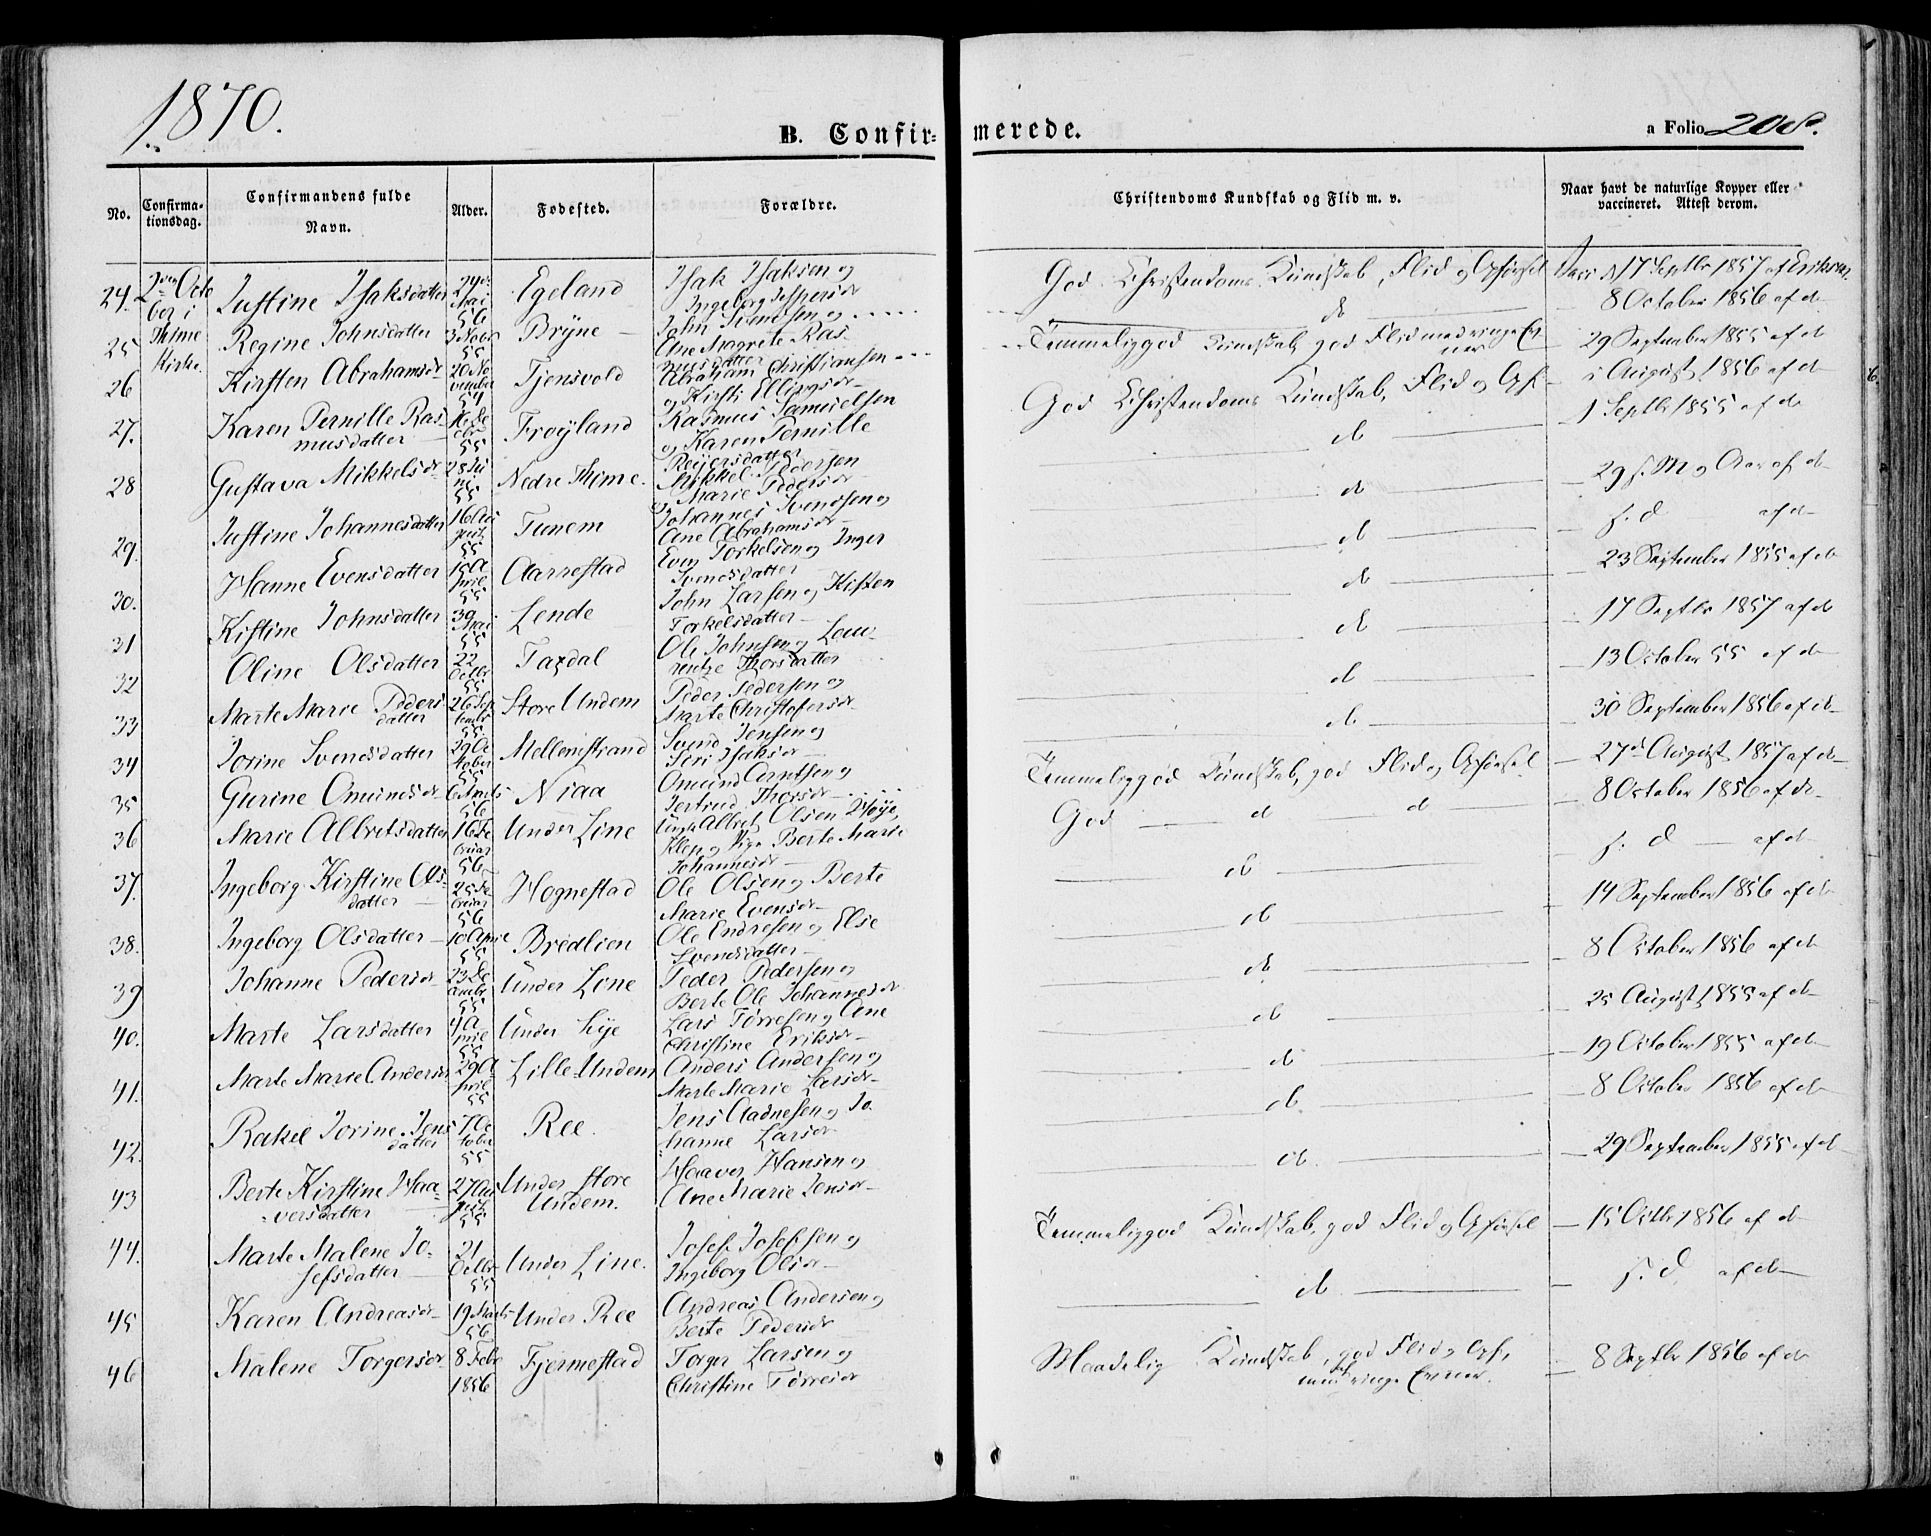 1870.
B. Confirmerede.
a Folio 208.
No.
Confirmationsdag.
Confirmandens fulde Navn.
Alder.
Fødested.
Forældre.
Christendoms Kundskab og Flid m. v.
Naar havt de naturlige Kopper eller vaccineret. Attest derom.
24. 2den Octo Justine Isaksdatter 24de Egeland Isak Isaksen og God Christendoms Kundskab, Flid og Opførsel 17 Septbr 1857 af Eriksen
ber i Mai 56 Ingeborg Jespersdr
25 Thime Regine Johnsdatter 3 Novbr Bryne John Svendsen og d 8 October 1856 af d
Kirke. 55 Ane Magrete Rasmusdatter
26 Kirsten Abrahamsdr 20 November Tjensvold Abraham Christiansen Temmeliggod Kundskab, god Flid med ringe Evner 29 September 1855 af d
54 og Kirsti Ellingsdr
27. Karen Pernille Rasmusdatter 16 Frøyland Rasmus Samuelsen God Christendoms Kundskab, Flid og Opf i August 1856 af d
55 og Karen Pernille Reiersdatter
28 Gustava Mikkelsdr 28 Juni Nedre Thime. Mikkel Pedersen d 1 Septbr 1855 af d
55 og Marie Pedersdr
29. Justine Johannesdatter 16 August Tunem Johannes Svendsen og d 29 s. M og Aar af d
55 Ane Abrahamsdr
30. Hanne Evensdatter 15 April Aarrestad Even Torkelsen og Inger d s. d af d
55 Svendsdatter
31 Kistine Johnsdatter 30 Mai Lende John Larsen og Kisten d 23 September 1855 af d
55 Torkelsdatter
32 Oline Olsdatter 22 Octbr Taxdal Ole Johnsen og Laurentze Thorsdatter d 17 Septbr 1857 af d
55
33 Marte Marie Pedersdatter 26 September Store Undem Peder Pedersen og d 13 October 55 af d
55 Marte Christofersdr
34 Jorine Svendsdatter 29 October Mellemstrand Svend Jensen og d 30 September 1856 af d
55 Siri Isaksdr
35 Gurine Omundsdr 6 Marts Niaa Omund Arntsen og Temmeliggod Kundskab, god Flid og Opførsel 27de August 1857 af d
56 Jertrud Thorsdr
36 Marie Albretsdatter 16 Februar Under Line Ungk Albret Olsen Høye, God d d 8 October 1856 af d
56 Klep og Pige Berte Marie Johannesdr
37. Ingeborg Kirstine Olsdatter 25 Februar Hognestad Ole Olsen og Berte d s. d af d
56 Marie Evensdr
38. Ingeborg Olsdatter 10 April Bredlien Ole Endresen og Else d 14 September 1856 af d
55 Svendsdatter
39 Johanne Pedersdr 23 Decembr Under Line Peder Pedersen og d 8 October 1856 af d
55 Berte Ole Johannesdr
40. Marte Larsdatter 4 April Under Lye Lars Tørresen og Ane d 25 August 1855 af d
55 Christine Eriksdr
41. Marte Marie Andersdr 29 April Lille-Undem Anders Andersen og d 19 October 1855 af d
55 Marte Marie Larsdr
42. Rakel Jorine Jensdatter 7 October Ree. Jens Aadnesen og Johanne Larsdr d. 8 October 1856 af d
55
43 Berte Kirstine Haaversdatter 27 August Under Store Undem. Haaver Hansen og d. 29 September 1855 af d
55 Ane Marie Jensdr
44. Marte Malene Josefsdatter 21 Octbr Under Line. Josef Josefsen og Temmeliggod Kundskab, god Flid og Opførsel 15 Octbr 1856 af d
55 Ingeborg Olsdr
45 Karen Andreasdr 19 Marts Under Ree Andreas Andersen og d. s. d. af d
56 Berte Pedersdr
46 Malene Torgersdr 8 Febr Fjermestad Torger Larsen og Maadelig Kundskab, god Flid og Opf, 8 Septbr 1856 af d
1856 Christine Tørresdr med ringe Evner.